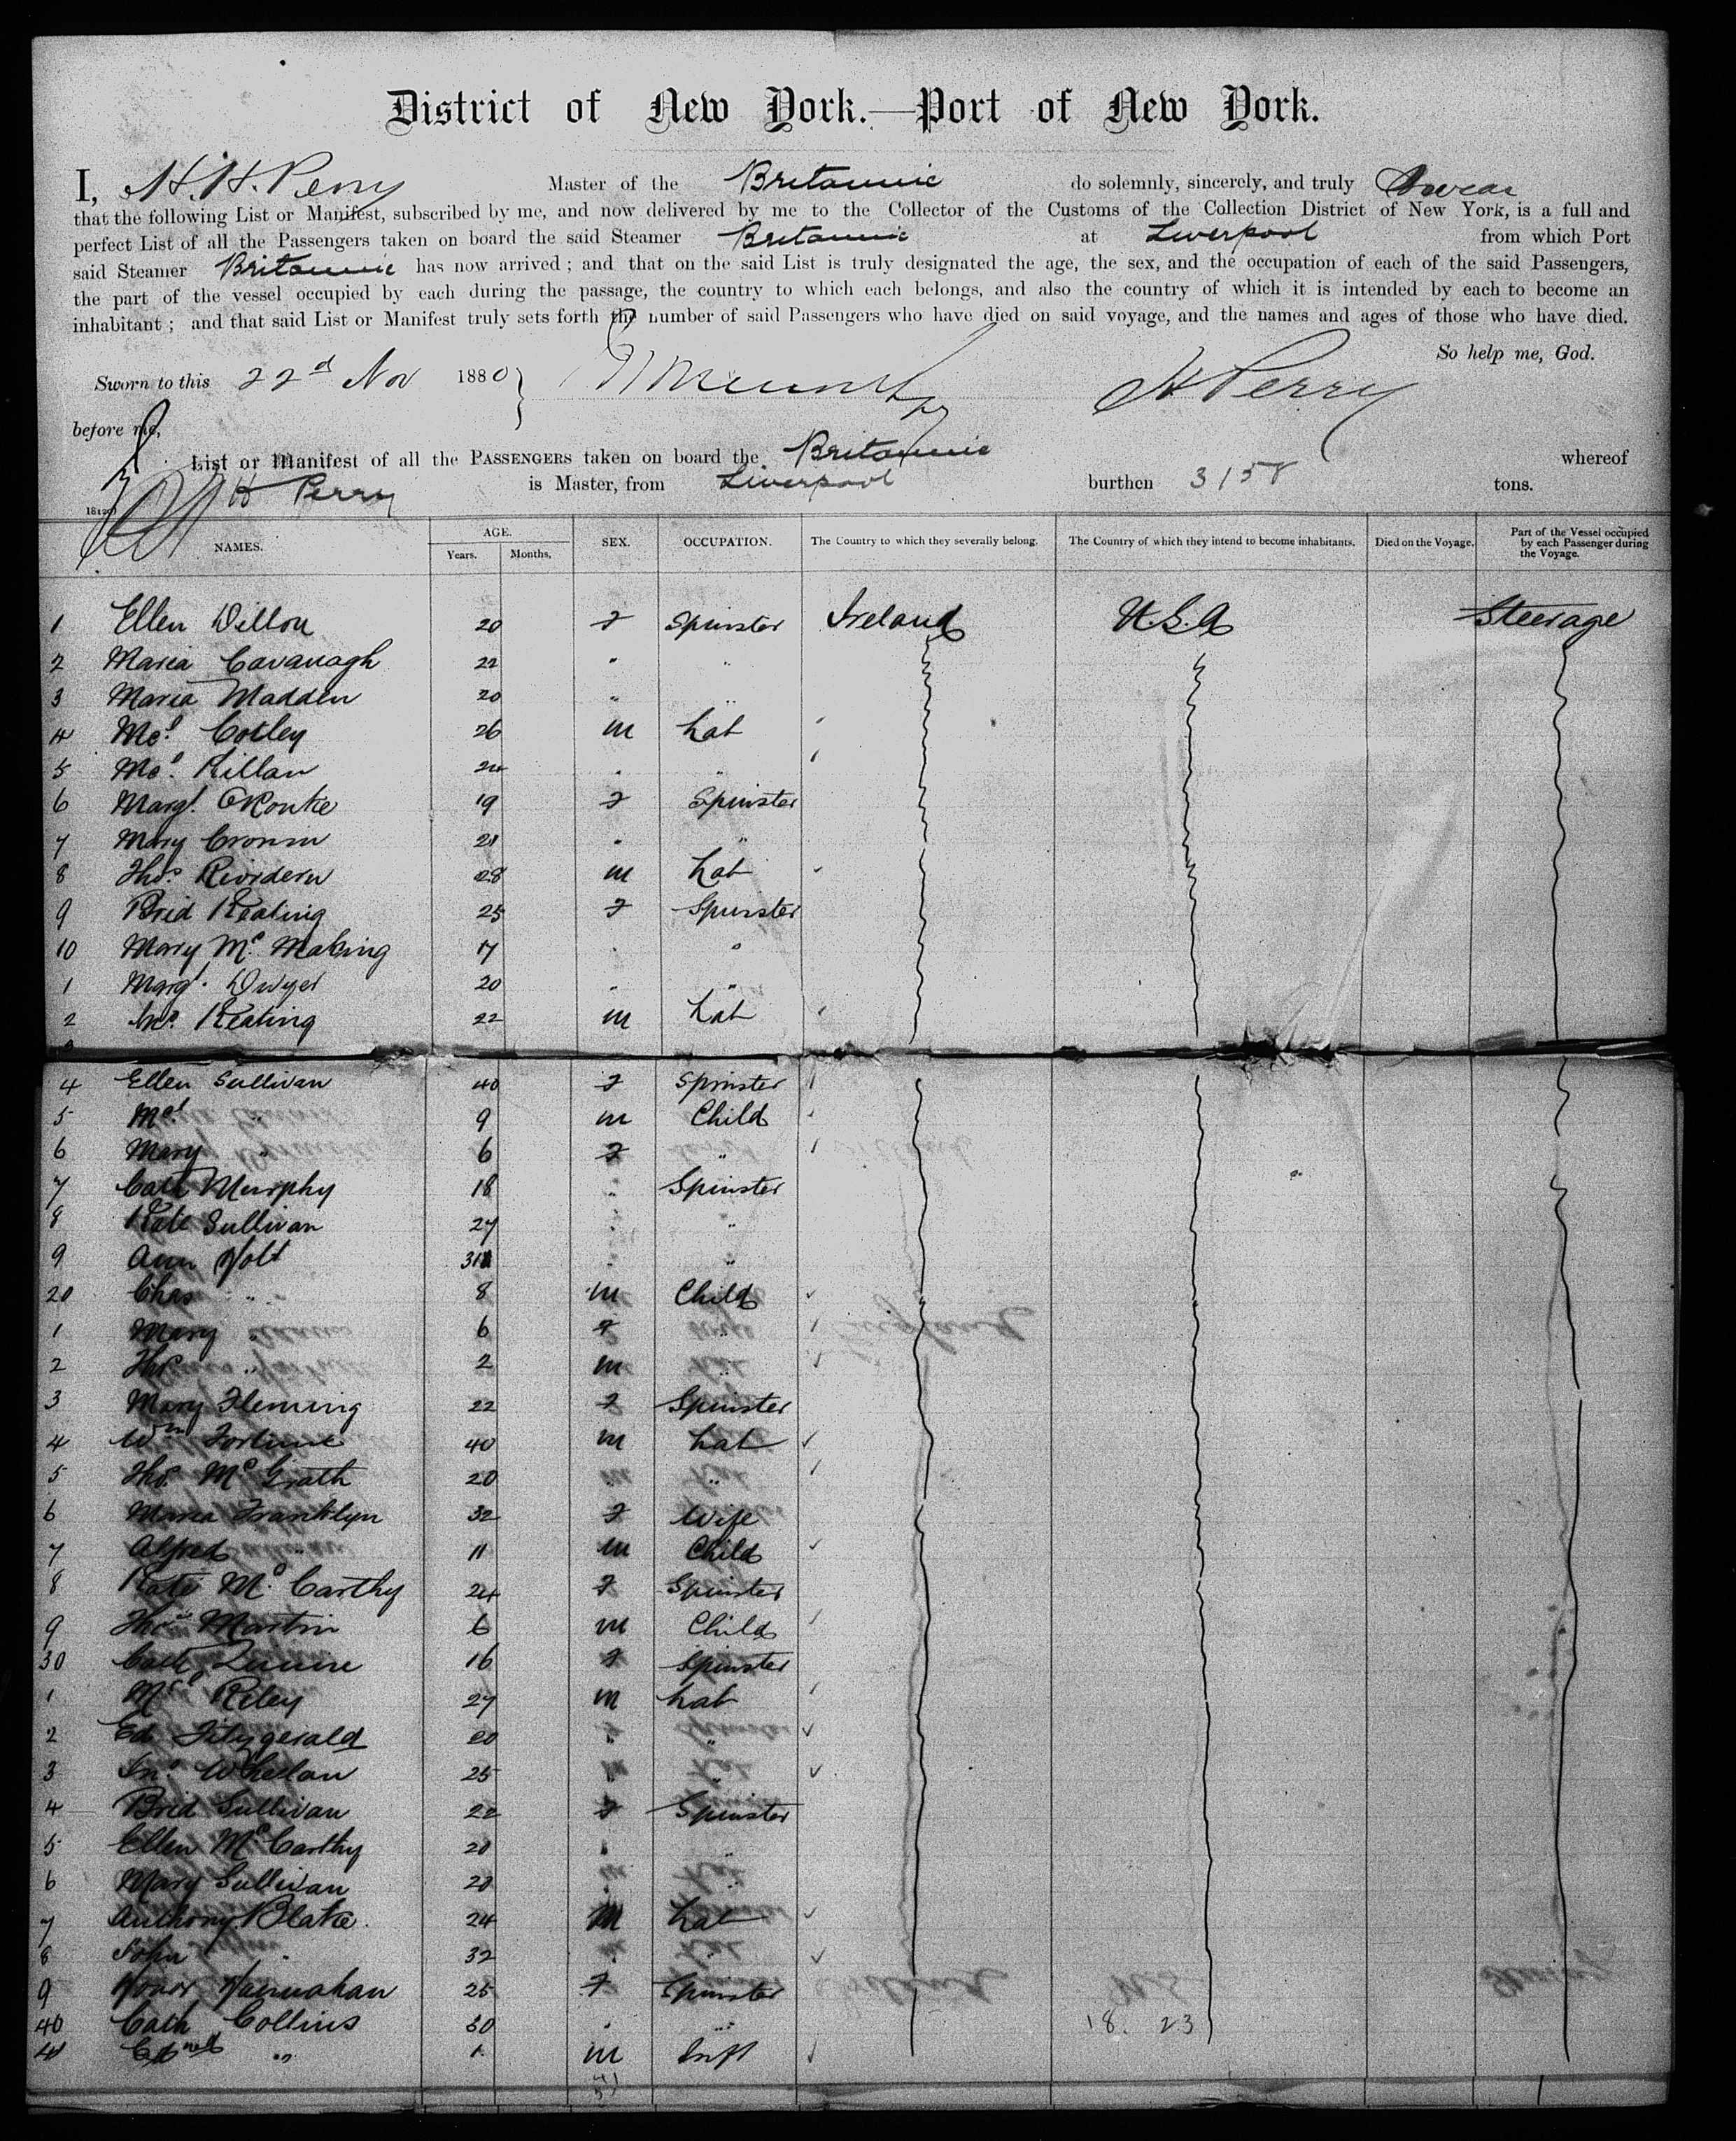 District of New York.—Port of New York.
I, H. H. Perry Master of the Britannic do solemnly, sincerely, and truly Swear
that the following List or Manifest, subscribed by me, and now delivered by me to the Collector of the Customs of the Collection District of New York, is a full and
perfect List of all the Passengers taken on board the said Steamer Britannic at Liverpool from which Port
said Steamer Britannic has now arrived; and that on the said List is truly designated the age, the sex, and the occupation of each of the said Passengers,
the part of the vessel occupied by each during the passage, the country to which each belongs, and also the country of which it is intended by each to become an
inhabitant; and that said List or Manifest truly sets forth the number of said Passengers who have died on said voyage, and the names and ages of those who have died.
So help me, God.
Sworn to this 22d Nov 1880 H Perry
before me,
List or Manifest of all the PASSENGERS taken on board the Britannic whereof
H Perry is Master, from Liverpool burthen 3158 tons.
NAMES. AGE. Years. Months. SEX. OCCUPATION. The Country to which they severally belong. The Country of which they intend to become inhabitants. Died on the Voyage. Part of the Vessel occupied by each Passenger during the Voyage.
1 Ellen Dillon 20 F Spinster Ireland U.S.A Steerage
2 Maria Cavanagh 22 " "
3 Maria Madden 20 " "
4 Mcl. Cotley 26 m Lab
5 Mcl. Killan 24 " "
6 Margt. ORourke 19 F Spinster
7 Mary Cronin 21 " "
8 Thos. Riordern 28 m Lab
9 Brid Keating 25 F Spinster
10 Mary Mc Mahing 17 " "
1 Margt. Dwyer 20 " "
2 Jno. Keating 22 m Lab
4 Ellen Sullivan 40 F Spinster
5 Mcl " 9 m Child
6 Mary " 6 F "
7 Cath Murphy 18 " Spinster
8 Kate Sullivan 27 " "
9 Ann Holt " "
20 Chas " 8 m Child
1 Mary " 6 F "
2 Thos " 2 m "
3 Mary Fleming 22 F Spinster
4 Wm Fortune 40 m Lab
5 Thos. McGrath 20 " "
6 Maria Franklyn 32 F Wife
7 Alfred " 11 m Child
8 Kate McCarthy 24 F Spinster
9 Thos Martin 6 m Child
30 Cath 16 F Spinster
1 Mcl Riley 27 m Lab
2 Ed Fitzgerald 20 " "
3 Jno. Whelan 25 " "
4 Brid Sullivan 22 F Spinster
5 Ellen McCarthy 20 " "
6 Mary Sullivan 20 " "
7 Anthony Blake 24 M Lab
8 John " 32 " "
9 Honor Hanrahan 25 F Spinster
40 Cath Collins 30 " " 18. 23
41 Edmd " 1 m Inft